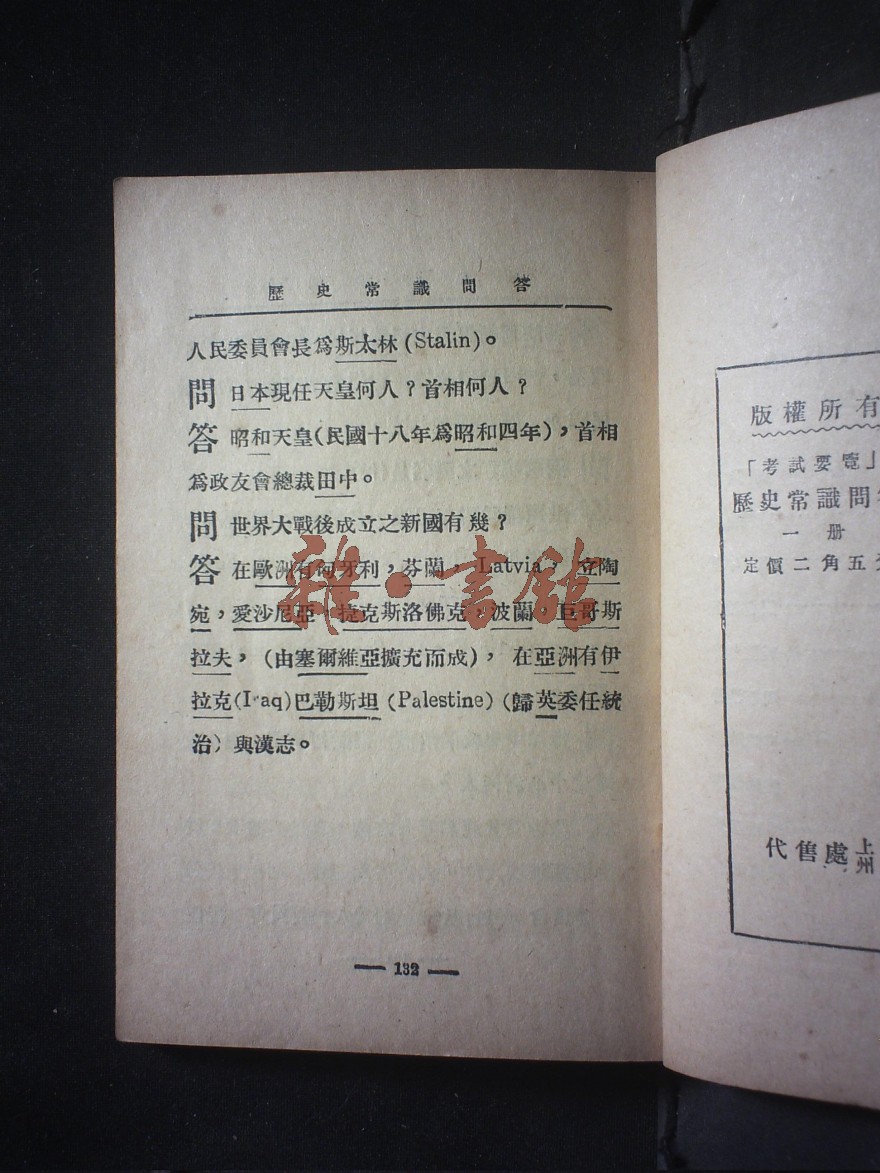 歷史常識問答
人民委員會長爲斯太林(Stalin)。
問 日本現任天皇何人?首相何人?
答 昭和天皇(民國十八年爲昭和四年),首相
爲政友會總裁田中。
問 世界大戰後成立之新國有幾?
答 在歐洲有匈牙利,芬蘭,Latvia,立陶
宛,愛沙尼亞,捷克斯洛佛克,波蘭,巨哥斯
拉夫,(由塞爾維亞擴充而成),在亞洲有伊
拉克(Iraq)巴勒斯坦(Palestine)(歸英委任統
治)與漢志。
— 132 —
雜·書館
版權所有
「考試要覽」
歷史常識問
一册
定價二角五
代售處上
州